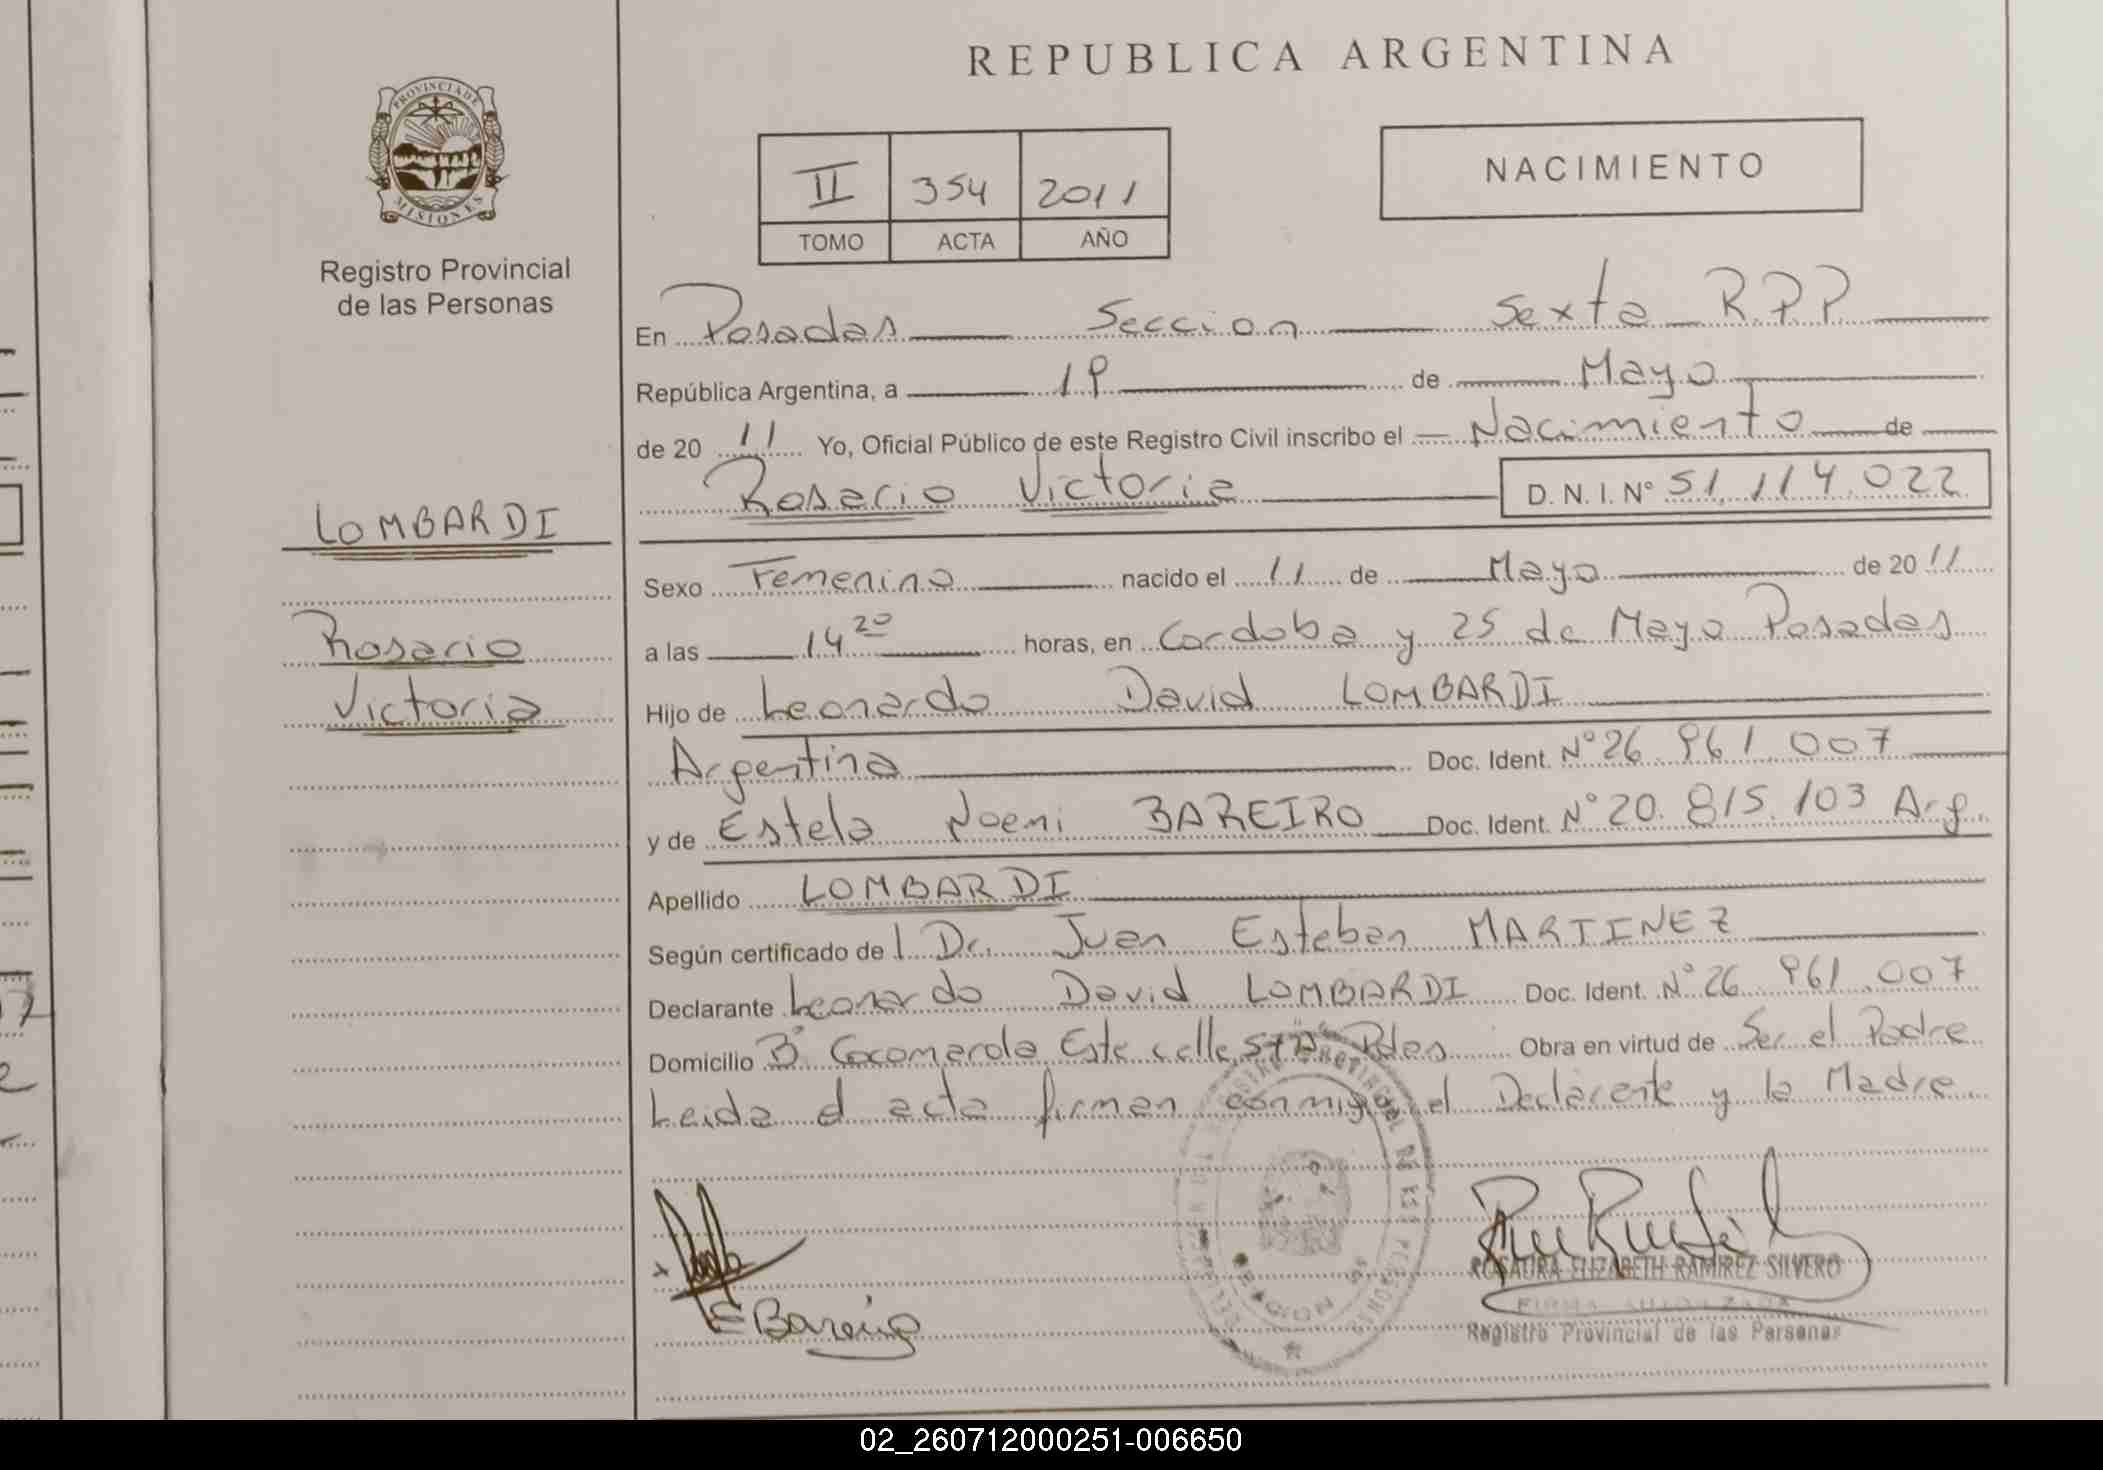 REPUBLICA ARGENTINA
PROVINCIA DE
MISIONES
Registro Provincial
de las Personas
II 354 2011
TOMO ACTA AÑO
NACIMIENTO
En Posadas Seccion Sexta R.P.P
República Argentina, a 19 de Mayo
de 20 11 Yo, Oficial Público de este Registro Civil inscribo el Nacimiento de
Rosario Victoria D. N. I. N° 51.114.022
LOMBARDI
Rosario
Victoria
Sexo Femenino nacido el 11 de Mayo de 2011
a las 14 20 horas, en Cordoba y 25 de Mayo Posadas
Hijo de Leonardo David LOMBARDI
Argentina Doc. Ident. N° 26.961.007
y de Estela Noemi BAREIRO Doc. Ident. N° 20.815.103 Arg.
Apellido LOMBARDI
Según certificado de l Dr. Juan Esteban MARTINEZ
Declarante Leonardo David LOMBARDI Doc. Ident. N° 26.961.007
Domicilio B° Cocomarola Este calle Pdas Obra en virtud de Ser el Padre
Leida el acta firman conmigo el Declarante y la Madre
E Bareiro
REGION
ROSAURA ELIZABETH RAMIREZ SILVERO
FIRMA AUTORIZADA
Registro Provincial de las Personas
02_260712000251-006650